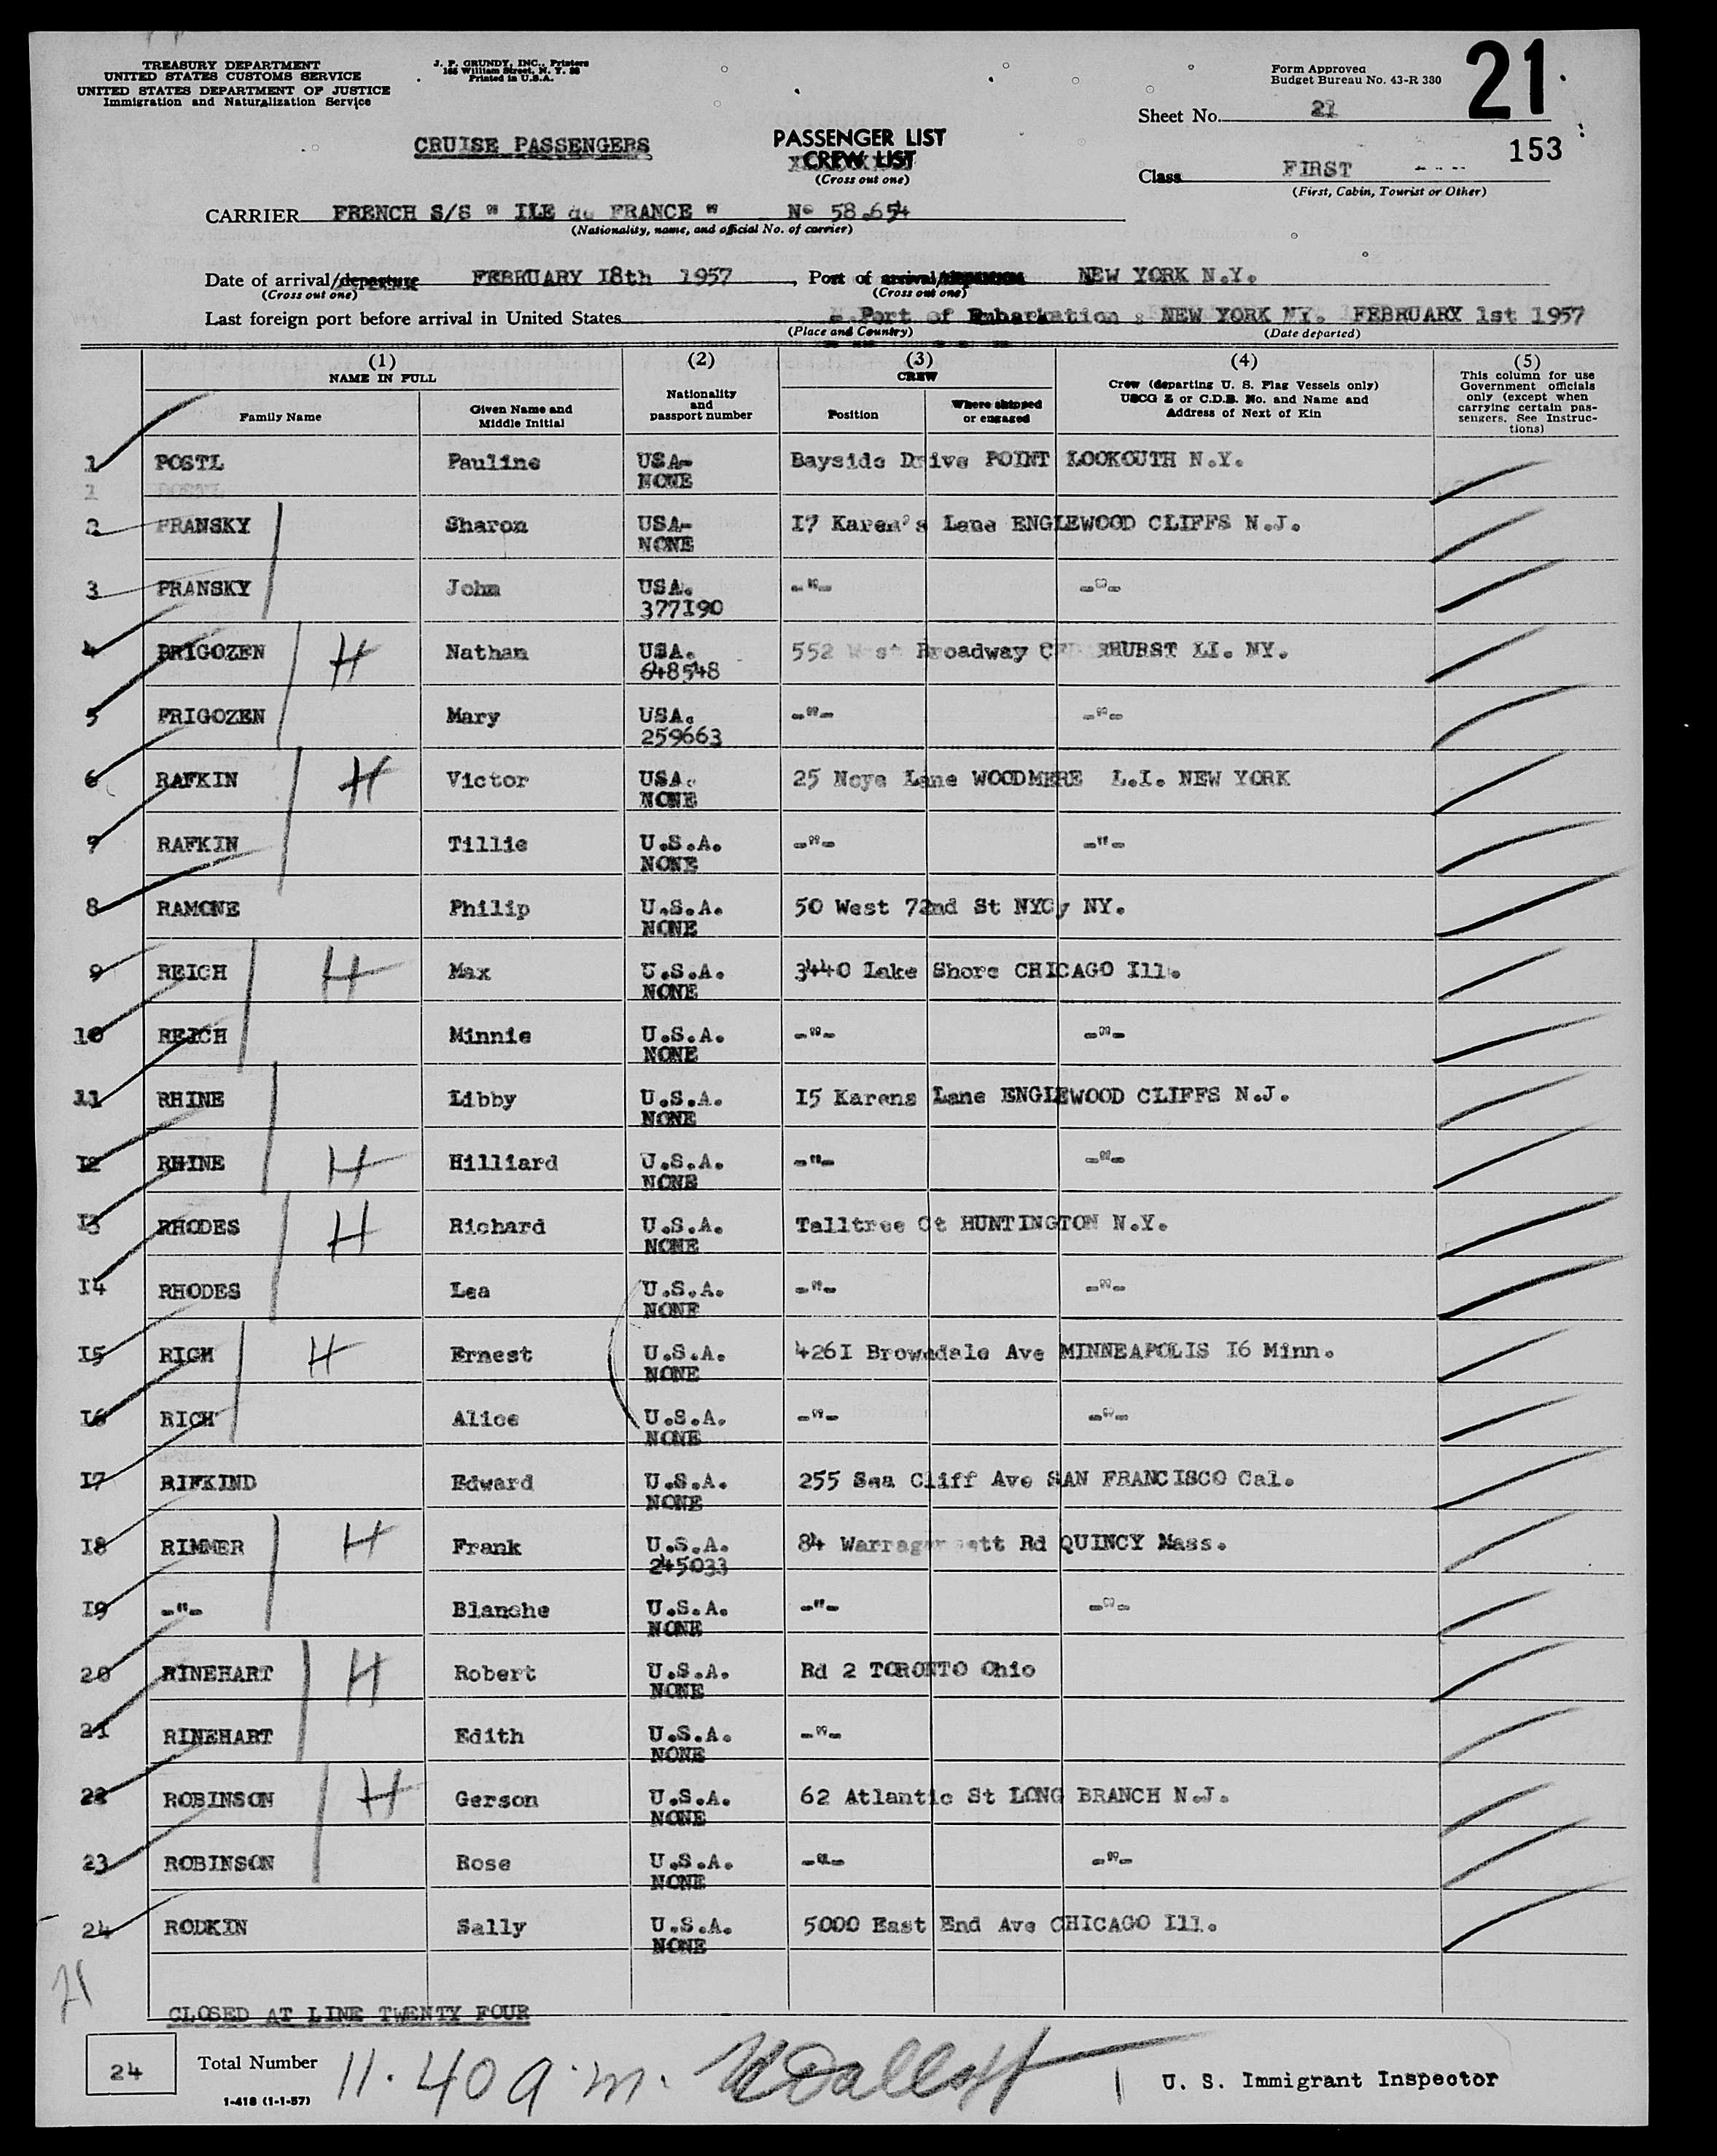 TREASURY DEPARTMENT
UNITED STATES CUSTOMS SERVICE
UNITED STATES DEPARTMENT OF JUSTICE
Immigration and Naturalization Service
J. F. GRUNDY, INC., Printers
Printed in U.S.A.
Form Approved
Budget Bureau No. 43-R 380
21
Sheet No. 21
153
CRUISE PASSENGERS
PASSENGER LIST
CREW LIST
(Cross out one)
Class FIRST
(First, Cabin, Tourist or Other)
CARRIER FRENCH S/S " ILE de FRANCE " N° 58.654
(Nationality, name, and official No. of carrier)
Date of arrival/departure FEBRUARY I8th 1957, Port of arrival/ NEW YORK N.Y.
(Cross out one) (Cross out one)
Last foreign port before arrival in United States Port of Embarkation : NEW YORK NY. FEBRUARY 1st 1957
(Place and Country) (Date departed)
(1) NAME IN FULL
Family Name
Given Name and Middle Initial
(2) Nationality and passport number
(3) CREW
Position
Where shipped or engaged
(4) Crew (departing U. S. Flag Vessels only) USCG Z or C.D.B. No. and Name and Address of Next of Kin
(5) This column for use Government officials only (except when carrying certain passengers. See Instructions)
1 POSTL Pauline USA- NONE Bayside Drive POINT LOOKOUTH N.Y.
2 PRANSKY Sharon USA- NONE I7 Karen's Lane ENGLEWOOD CLIFFS N.J.
3 PRANSKY John USA. 377I90 -"- -"-
4 PRIGOZEN H Nathan USA. 648548 552 West Broadway CEDARHURST LI. NY.
5 PRIGOZEN Mary USA. 259663 -"- -"-
6 RAFKIN H Victor USA. NONE 25 Noye Lane WOODMERE L.I. NEW YORK
7 RAFKIN Tillie U.S.A. NONE -"- -"-
8 RAMONE Philip U.S.A. NONE 50 West 72nd St NYCy NY.
9 REICH H Max U.S.A. NONE 3440 Lake Shore CHICAGO Ill.
10 REICH Minnie U.S.A. NONE -"- -"-
11 RHINE Libby U.S.A. NONE I5 Karens Lane ENGLEWOOD CLIFFS N.J.
I2 RHINE H Hilliard U.S.A. NONE -"- -"-
I3 RHODES H Richard U.S.A. NONE Talltree Ct HUNTINGTON N.Y.
I4 RHODES Lea U.S.A. NONE -"- -"-
I5 RICH H Ernest U.S.A. NONE 426I Browndale Ave MINNEAPOLIS I6 Minn.
I6 RICH Alice U.S.A. NONE -"- -"-
I7 RIFKIND Edward U.S.A. NONE 255 Sea Cliff Ave SAN FRANCISCO Cal.
I8 RIMMER H Frank U.S.A. 245033 84 Rd QUINCY Mass.
I9 -"- Blanche U.S.A. NONE -"- -"-
20 RINEHART H Robert U.S.A. NONE Rd 2 TORONTO Ohio
2I RINEHART Edith U.S.A. NONE -"-
22 ROBINSON H Gerson U.S.A. NONE 62 Atlantic St LONG BRANCH N.J.
23 ROBINSON Rose U.S.A. NONE -"- -"-
24 RODKIN Sally U.S.A. NONE 5000 East End Ave CHICAGO Ill.
21
CLOSED AT LINE TWENTY FOUR
24 Total Number 11.40 a.m. U. S. Immigrant Inspector
1-418 (1-1-57)